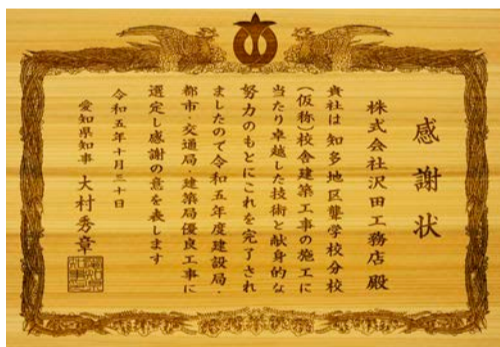 感謝状
株式会社沢田工務店 殿
貴社は知多地区聾学校分校
(仮称)校舎建築工事の施工に
当たり卓越した技術と献身的な
努力のもとにこれを完了され
ましたので令和五年度建設局・
都市・交通局・建築局優良工事に
選定し感謝の意を表します
令和五年十月三十日
愛知県知事 大村秀章